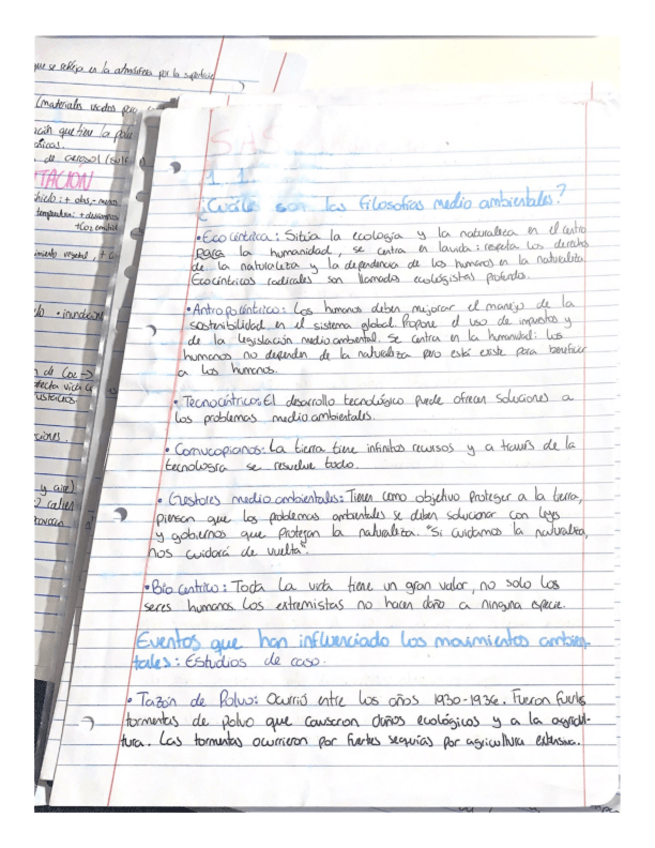 que se refleja en la atmósfera por la superficie
(materiales usados para
TACION
SAS
1.1.
¿Cuáles son las filosofías medio ambientales?
•Ecocéntrica: Sitúa la ecología y la naturaleza en el centro
para la humanidad, se centra en la vida: respeta los derechos
de la naturaleza y la dependencia de los humanos en la naturaleza.
Ecocéntricos radicales son llamados ecologistas profundo.
•Antropocéntrico: Los humanos deben mejorar el manejo de la
sostenibilidad en el sistema global. Propone el uso de impuestos y
de la legislación medio ambiental. Se centra en la humanidad: los
humanos no dependen de la naturaleza pero está existe para beneficiar
a los humanos.
• Tecnocéntricos: El desarrollo tecnológico puede ofrecer soluciones a
los problemas medio ambientales.
• Cornucopianos: La tierra tiene infinitos recursos y a través de la
tecnología se resuelve todo.
• Gestores medio ambientales: Tienen como objetivo proteger a la tierra,
piensan que los problemas ambientales se deben solucionar con leyes
y gobiernos que protegan la naturaleza. "Si cuidamos la naturaleza,
nos cuidará de vuelta".
•Bio centrico: Toda la vida tiene un gran valor, no solo los
seres humanos. Los extremistas no hacen daño a ninguna especie.
Eventos que han influenciado los movimientos ambien-
tales: Estudios de caso.
• Tazón de Polvo: Ocurrió entre los años 1930-1936. Fueron fuertes
tormentas de polvo que causaron daños ecológicos y a la agricul-
tura. Las tormentas ocurrieron por fuertes sequías por agricultura extensiva.